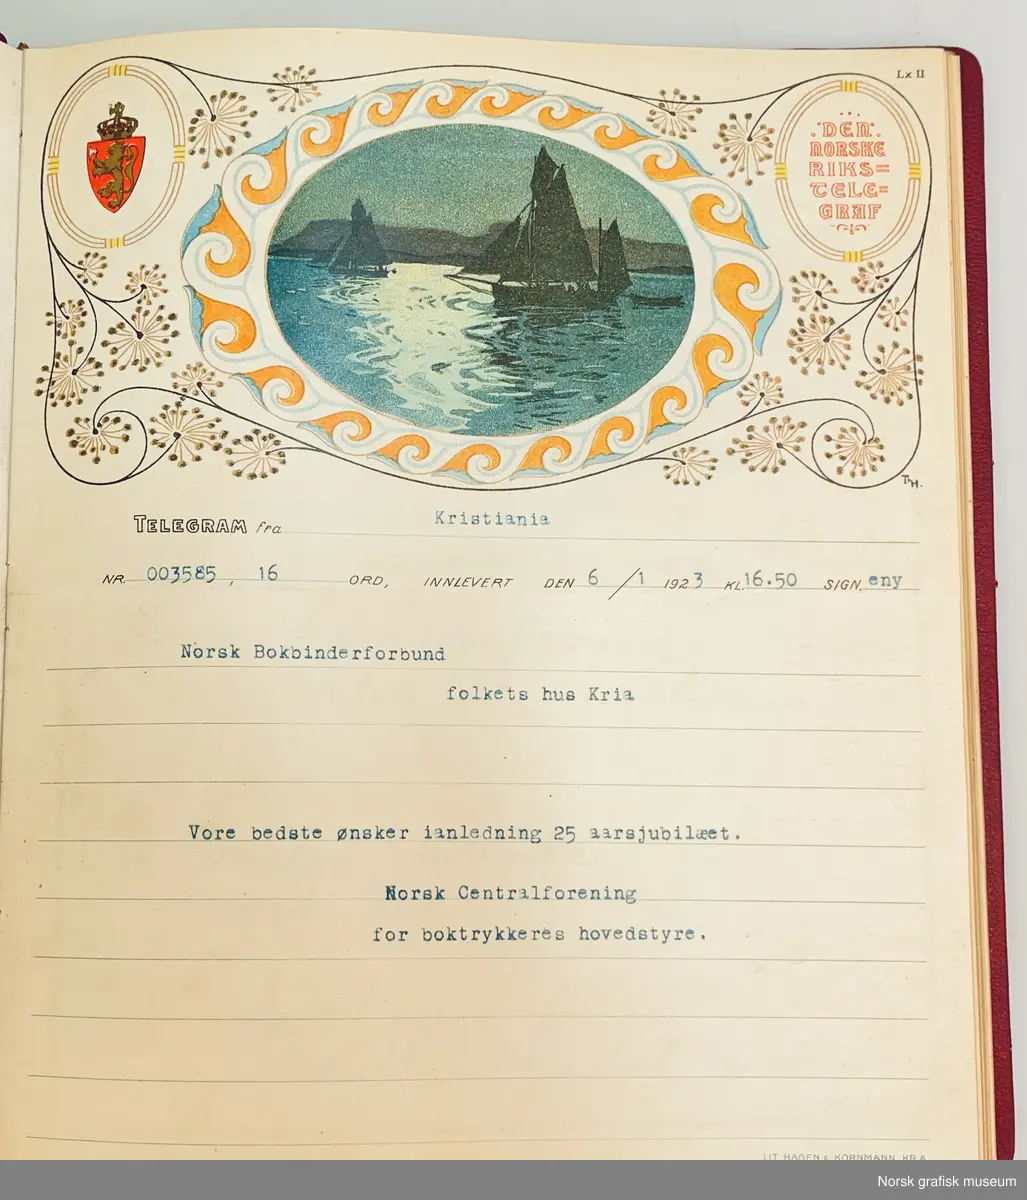 Lx II
DEN
NORSKE
RIKS=
TELE=
GRAF
TH.
TELEGRAM fra Kristiania
NR. 003585, 16 ORD, INNLEVERT DEN 6/1 1923 KL. 16.50 SIGN. eny
Norsk Bokbinderforbund
folkets hus Kria
Vore bedste ønsker ianledning 25 aarsjubilæet.
Norsk Centralforening
for boktrykkeres hovedstyre.
LIT. HAGEN & KORNMANN, KR.A.
Norsk grafisk museum